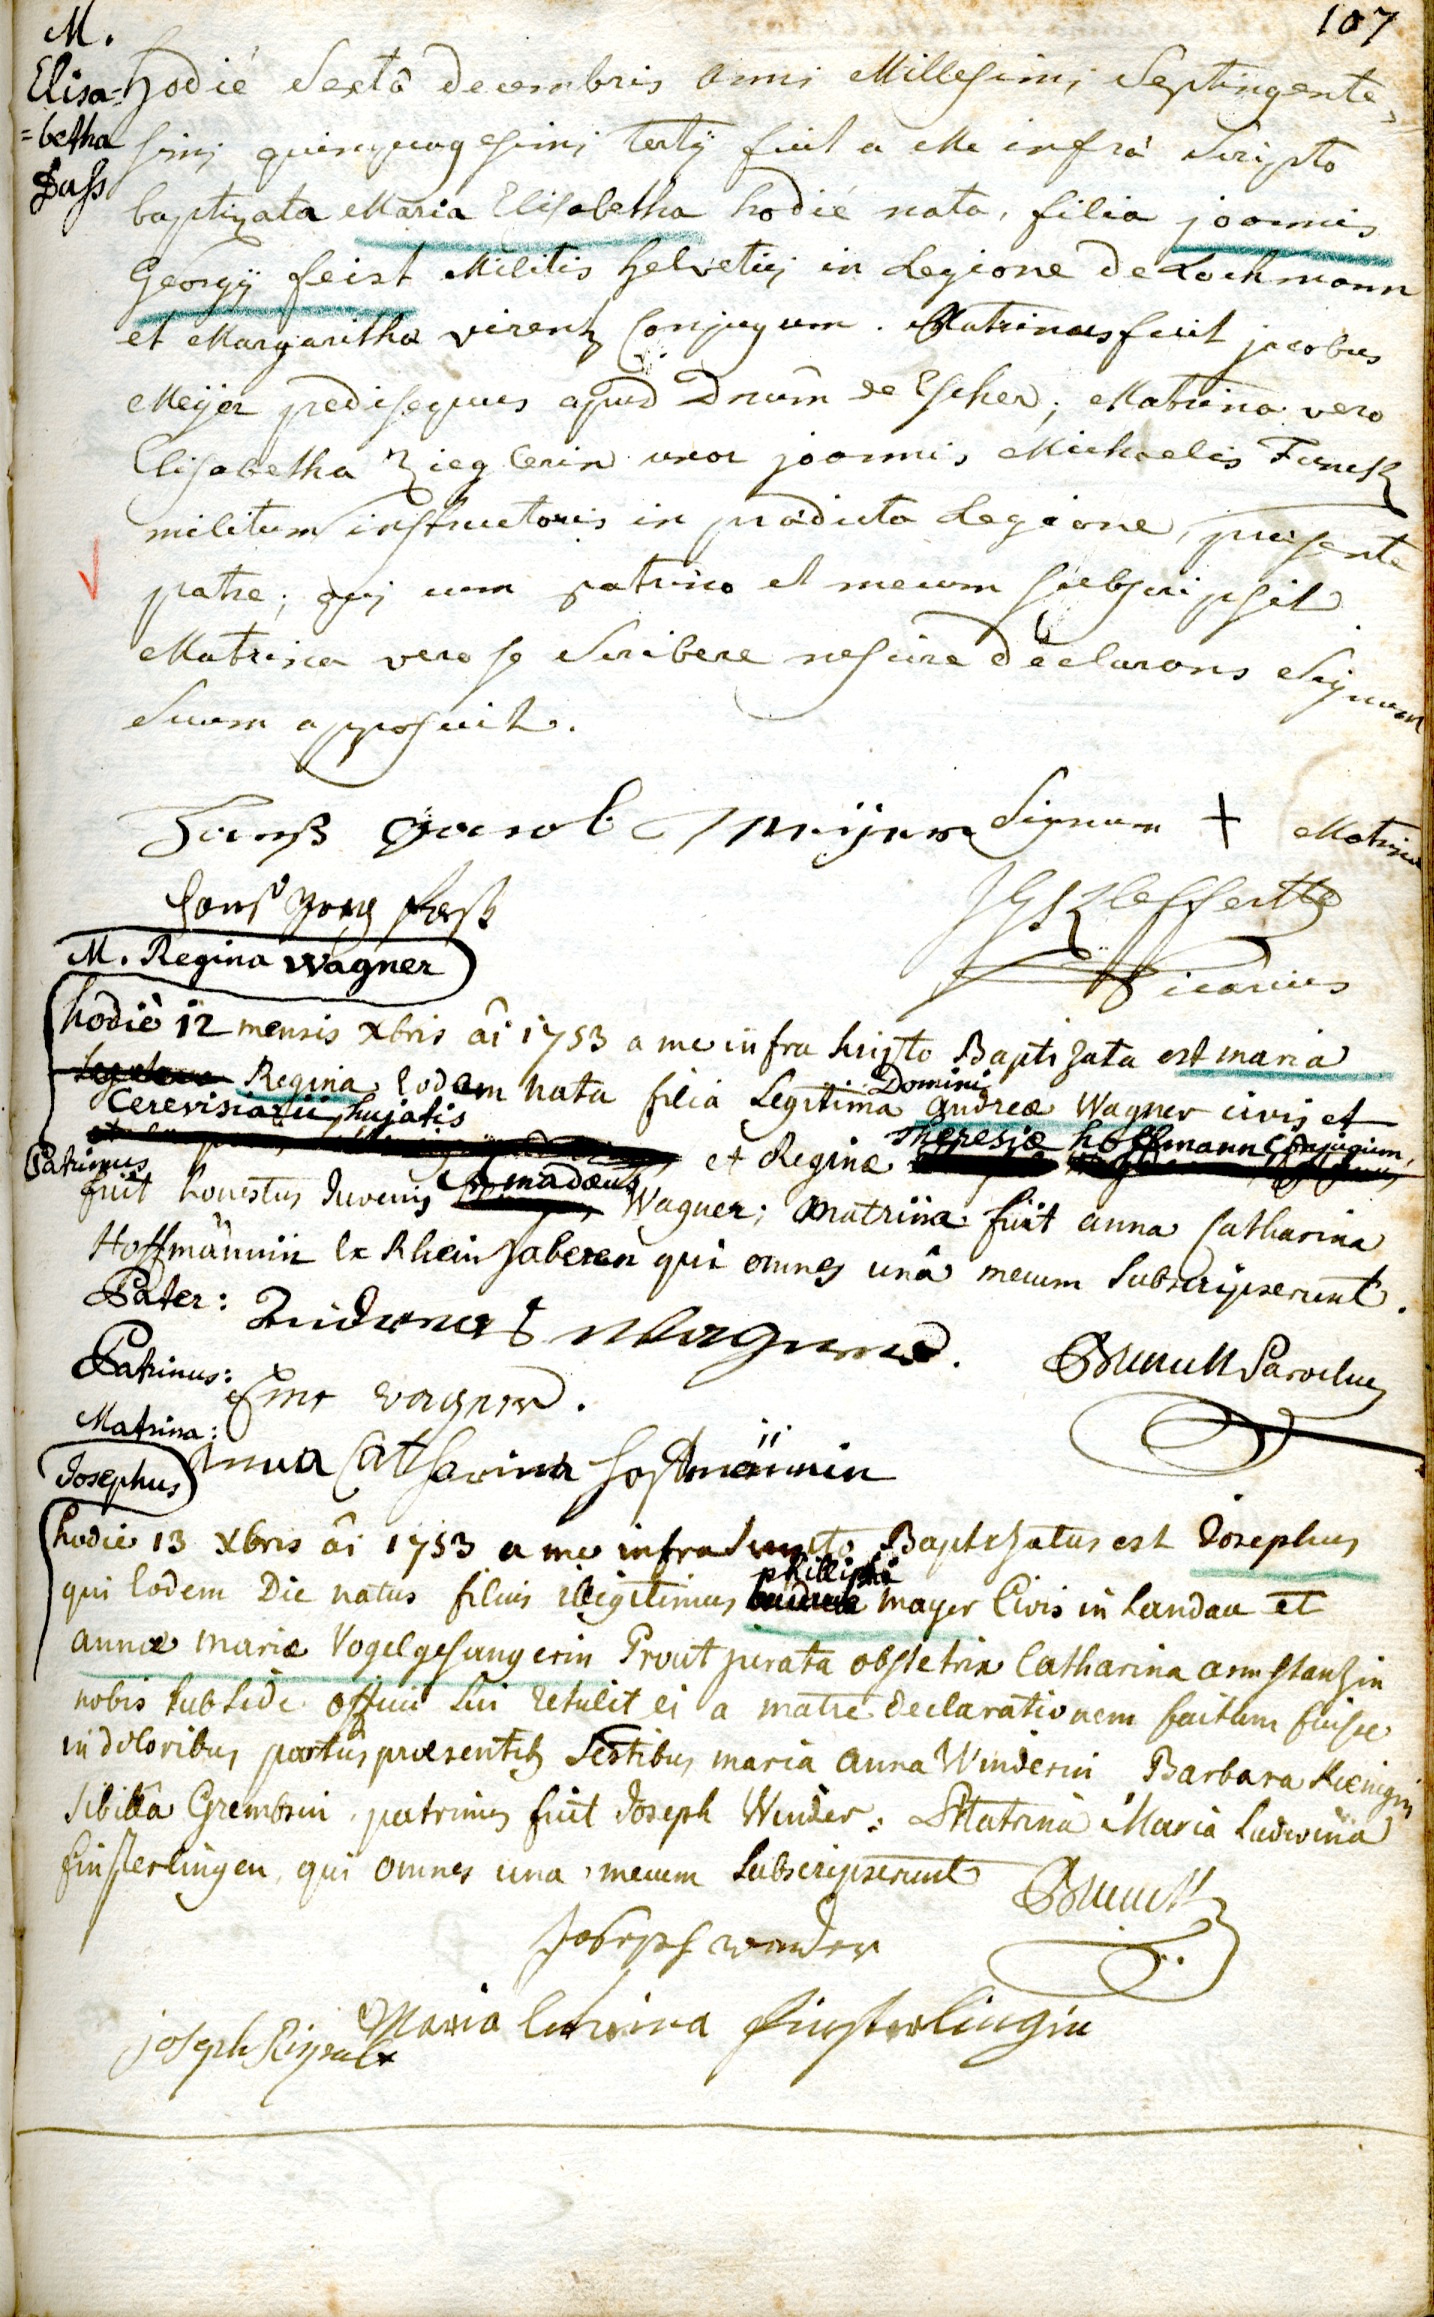 107
M.
Elisa=
=betha
Fass
hodié Sextâ decembris anni Millesimi Septingente-
simi quinquagesimi tertij fuit a Me infrà Scripto
baptizata Maria Elisabetha hodié nata, filia joannis
Georgij feist Militis helvetici in Legione de Lochmann
et Margaritha virentz Conjugum. Patrinus fuit jacobus
Meijer pedisequus apud Dnum de Escher; Matrina vero
Elisabetha Zieglerin uxor joannis Michaelis Funck
militum instructoris in praedicta Legione, praesente
patre; qui cum patrino et mecum subscripsit
Matrina vero se Scribere nescire declarans Signum
Suum apposuit.
Hanß Jacob Meijer Signum + Matrina
Hans Jörg
Vicarius
M. Regina Wagner
hodiè 12 mensis xbris aî 1753 a me infra scripto Baptizata est maria
Regina eodem nata filia Legitima Domini andreæ Wagner civis et
Cerevisiarii hujatis et Reginæ Theresiæ hoffmann Conjugum,
Patrinus
fuit honestus Juvenis Amadæus Wagner; Matrina fuit anna Catharina
Hoffmännin ex Rhein Zaberen qui omnes unâ mecum Subscripserunt.
Pater: Andreas Wagner.
Patrinus: Wagner.
Brunck Parochus
Matrina: Anna Catharina Hoffmännin
Josephus
hodie 13 Xbris aî 1753 a me infra Scripto Baptizatus est Josephus
qui Eodem Die natus filius illegitimus philippi mayer Civis in Landau et
annæ mariæ Vogelgesangerin Prout jurata obstetrix Catharina armstantzin
nobis sub fide officii sui retulit ei a matre declarationem factam fuisse
in doloribus partus præsentib testibus maria anna Winderin Barbara Kœnigin
Sibilla Grembsin, patrinus fuit Joseph Winder; Matrina Maria Ludwina
finsterlingen, qui omnes una mecum Subscripserunt
Brunck
Joseph Winder
Maria Ludwina Finsterlingin
joseph